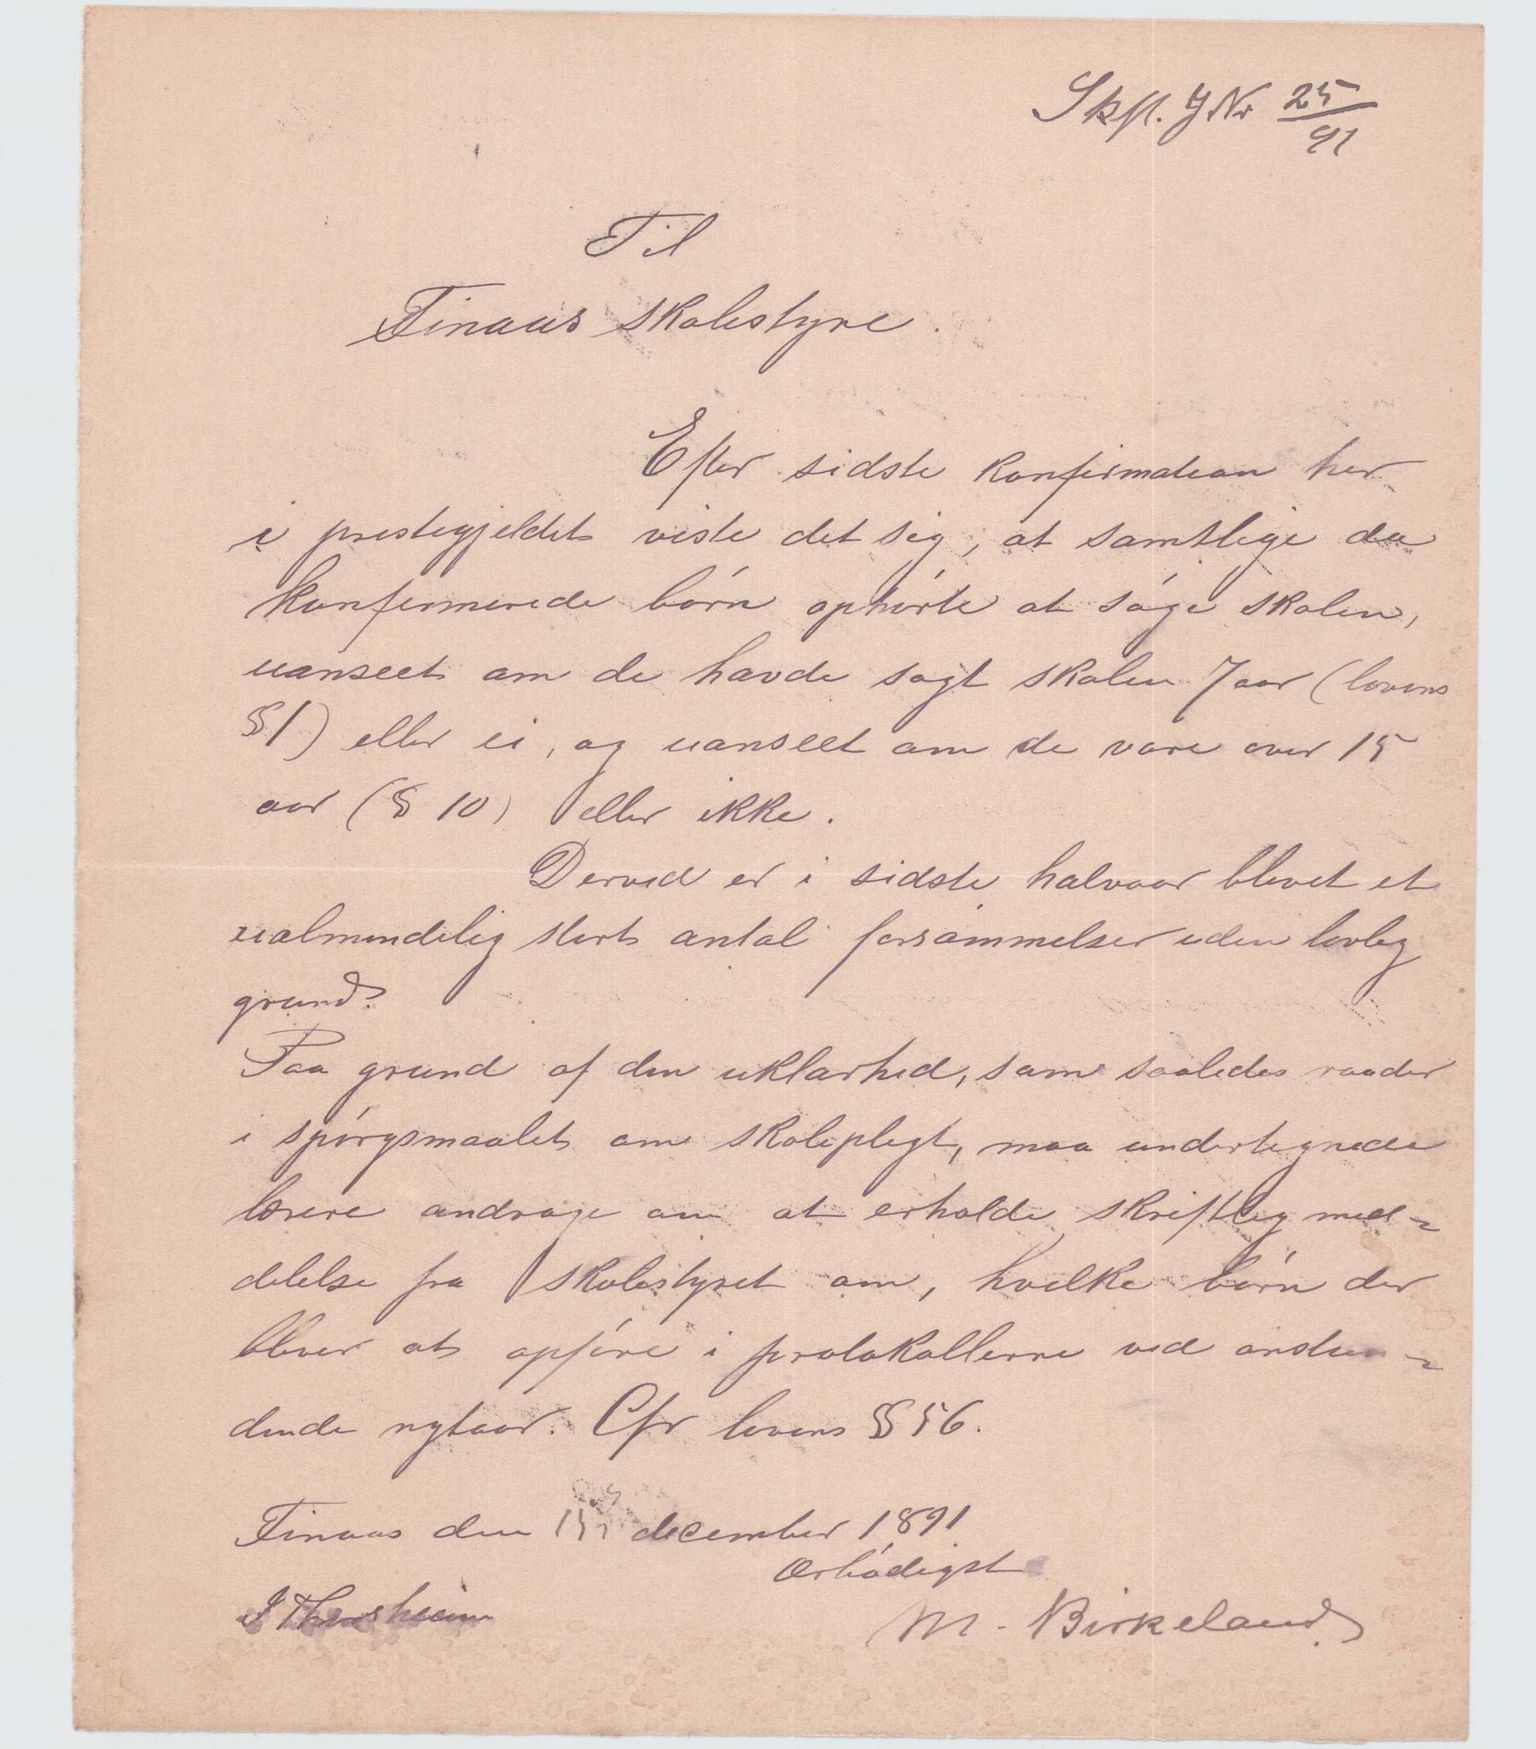 Skpl. J Nr 25/91
Til
Finaas skolestyre.
Efter sidste konfirmation her
i prestegjeldet viste det sig, at samtlige da
konfirmerede børn ophørte at søge skolen,
uanseet om de havde søgt skolen 7 aar (lovens
§ 1) eller ei, og uanseet om de vare over 15
aar (§ 10) eller ikke.
Derved er i sidste halvaar blevet et
ualmindelig stort antal forsømmelser uden lovlig
grund.
Paa grund af den uklarhed, som saaledes raader
i spørgsmaalet om skolepligt, maa undertegnede
lærere andrage om at erholde skriftlig med-
delelse fra skolestyret om, hvilke børn der
bliver at opføre i protokollerne ved anstun-
dende nytaar. Cfr lovens § 56.
Finaas den december 1891
Ærbødigst
M. Birkeland